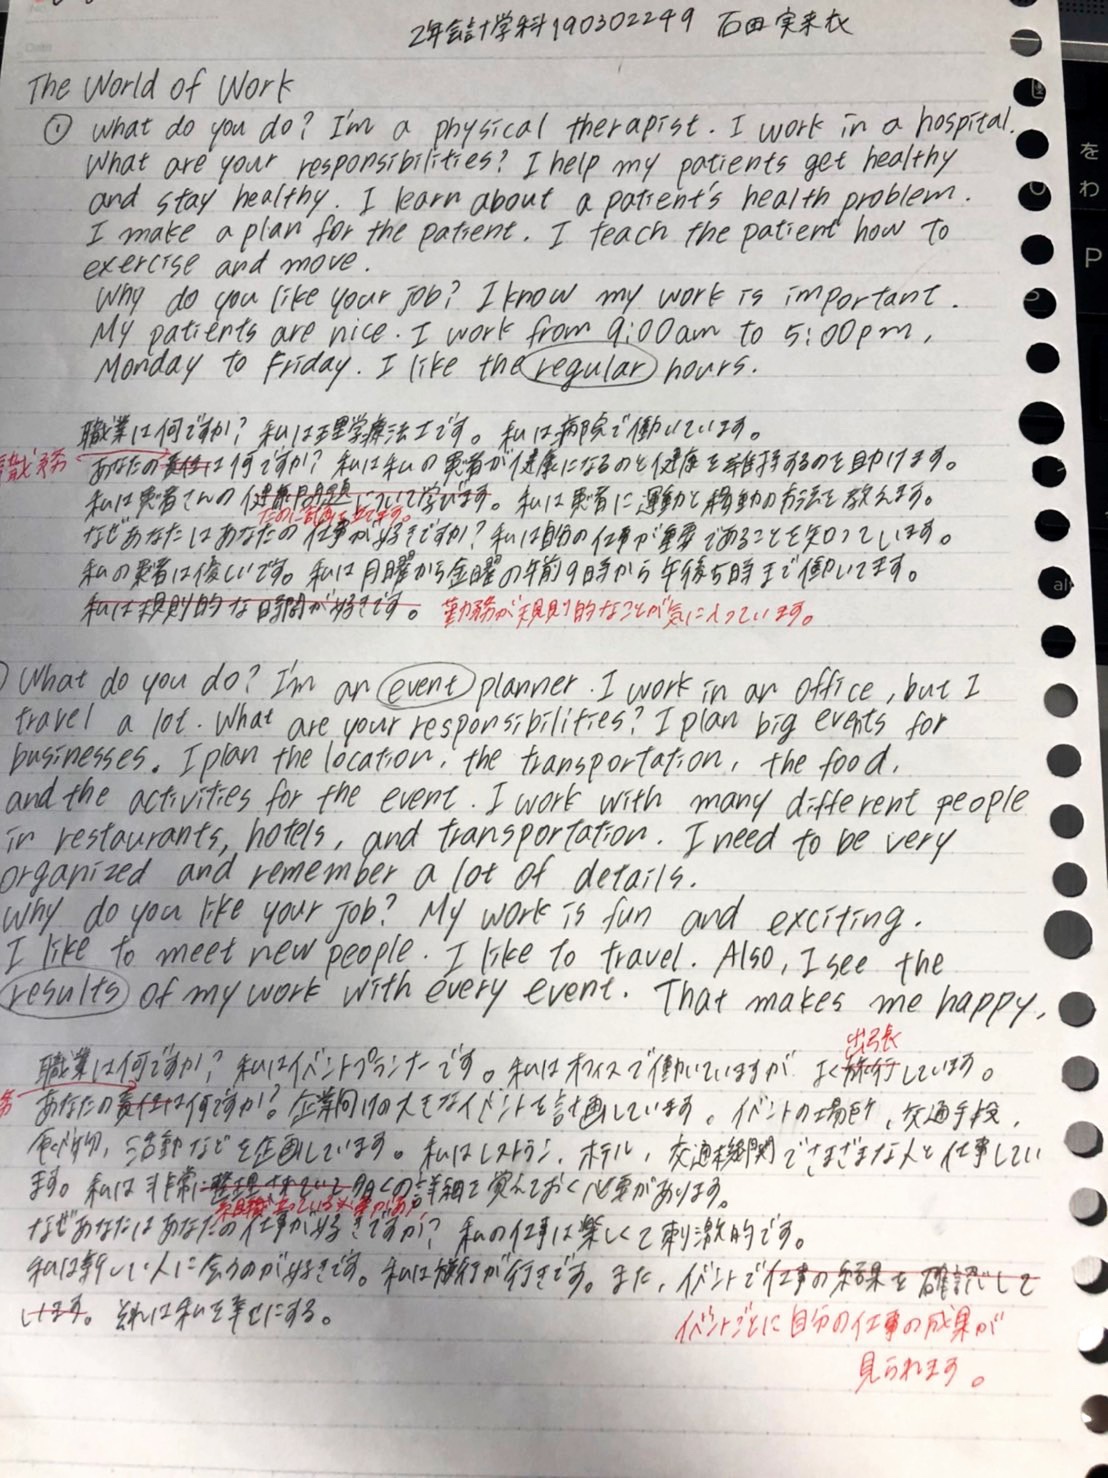 2年会計学科190302249 石田 実来衣
The World of Work
① What do you do? I'm a physical therapist. I work in a hospital.
What are your responsibilities? I help my patients get healthy
and stay healthy. I learn about a patient's health problem.
I make a plan for the patient. I teach the patient how to
exercise and move.
Why do you like your job? I know my work is important.
My patients are nice. I work from 9:00am to 5:00pm,
Monday to Friday. I like the regular hours.
職業は何ですか? 私は理学療法士です。私は病院で働いています。
職務
あなたの責任は何ですか? 私は私の患者が健康になるのと健康を維持するのを助けます。
私は患者さんの健康問題について学びます。私は患者に運動と移動の方法を教えます。
ために計画を立てます。
なぜあなたはあなたの仕事が好きですか? 私は自分の仕事が重要であることを知っています。
私の患者は優しいです。私は月曜から金曜の午前9時から午後5時まで働いてます。
私は規則的な時間が好きです。 勤務が規則的なことが気に入っています。
What do you do? I'm an event planner. I work in an office, but I
travel a lot. What are your responsibilities? I plan big events for
businesses. I plan the location, the transportation, the food,
and the activities for the event. I work with many different people
in restaurants, hotels, and transportation. I need to be very
organized and remember a lot of details.
Why do you like your job? My work is fun and exciting.
I like to meet new people. I like to travel. Also, I see the
results of my work with every event. That makes me happy,
出張
職業は何ですか? 私はイベントプランナーです。私はオフィスで働いていますが よく旅行しています。
務
あなたの責任は何ですか? 企業向けの大きなイベントを計画しています。イベントの場所、交通手段、
食べ物、活動などを企画しています。私はレストラン、ホテル、交通機関でさまざまな人と仕事してい
ます。私は非常に整理されていて多くの詳細を覚えておく必要があります。
なぜあなたはあなたの仕事が好きですか? 私の仕事は楽しくて刺激的です。
私は新しい人に会うのが好きです。私は旅行が行きです。また、イベントで仕事の結果を確認して
します。それは私を幸せにする。
イベントごとに自分の仕事の成果が
見られます。
を
わ
P